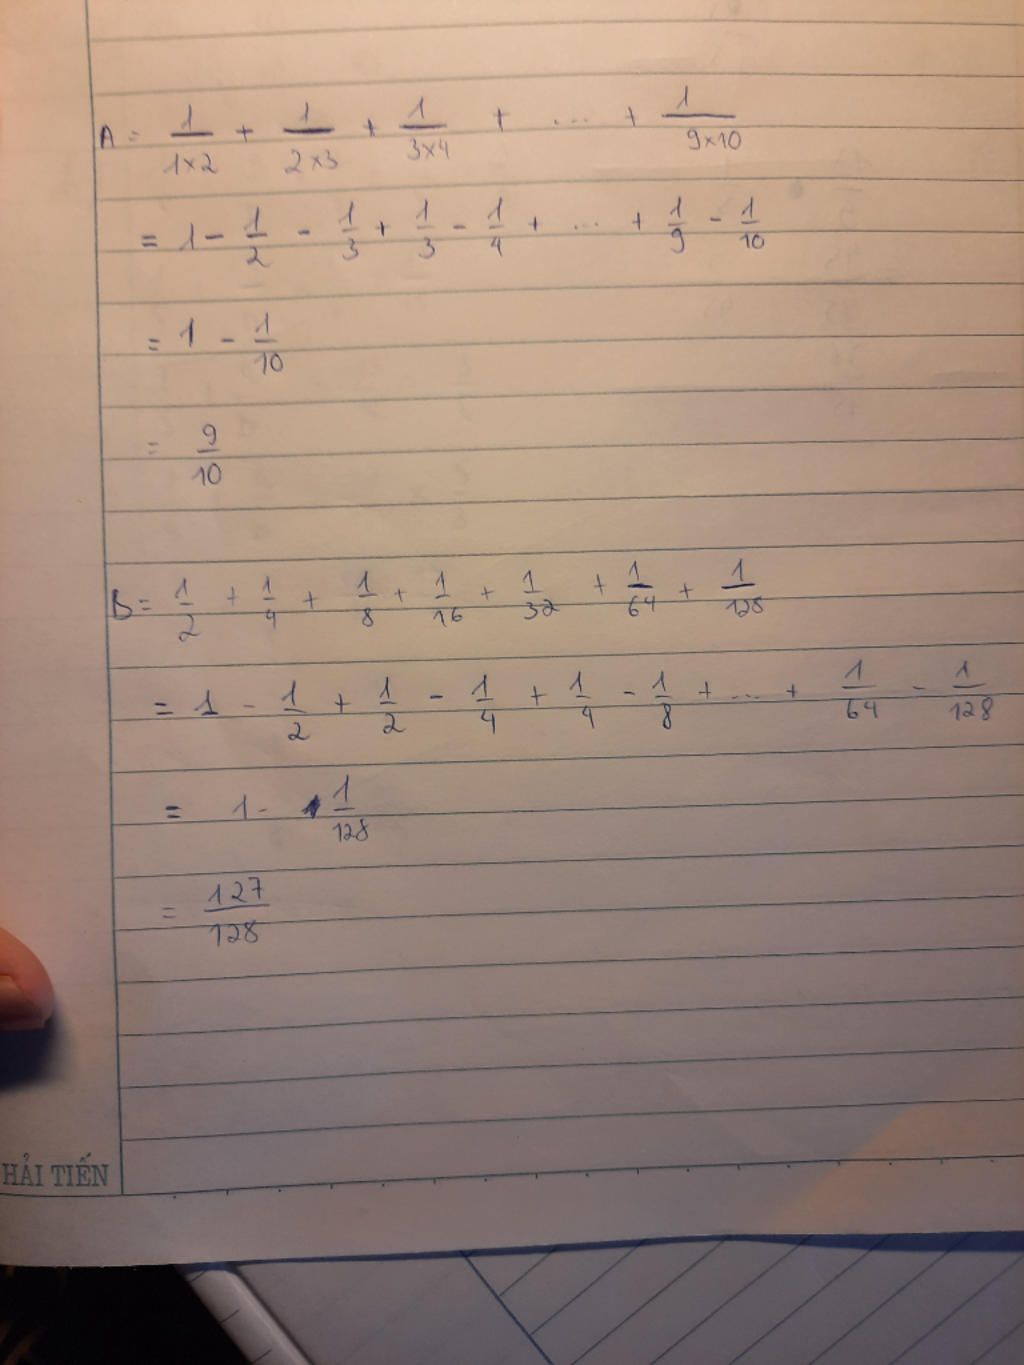 A = 1/(1×2) + 1/(2×3) + 1/(3×4) + ... + 1/(9×10)
= 1 - 1/2 - 1/3 + 1/3 - 1/4 + ... + 1/9 - 1/10
= 1 - 1/10
= 9/10
B = 1/2 + 1/4 + 1/8 + 1/16 + 1/32 + 1/64 + 1/128
= 1 - 1/2 + 1/2 - 1/4 + 1/4 - 1/8 + ... + 1/64 - 1/128
= 1 - 1/128
= 127/128
HẢI TIẾN